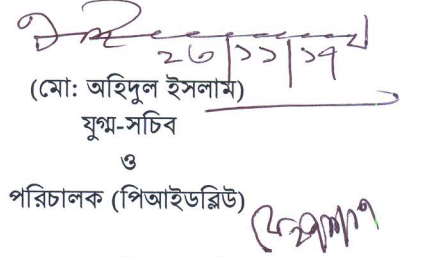 ২৩/১১/১৭
(মো: অহিদুল ইসলাম)
যুগ্ম-সচিব
ও
পরিচালক (পিআইডব্লিউ)